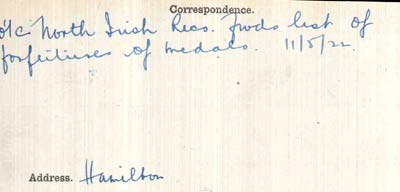 Correspondence.
O/C North Irish Recs. Fwds list of
forfeitures of medals. 11/5/22.
Address. Hamilton